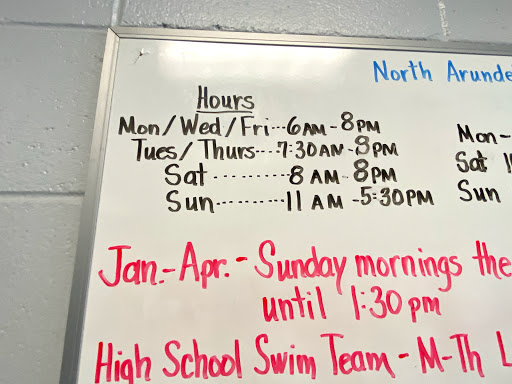 North Arunde
Hours
Mon/Wed/Fri---6AM-8PM
Tues/Thurs----7:30AM-8PM
Sat ---------- 8 AM-8PM
Sun----------11 AM -5:30PM
Mon-
Sat 1
Sun
Jan.-Apr.- Sunday mornings the
until 1:30 pm
High School Swim Team - M-Th L